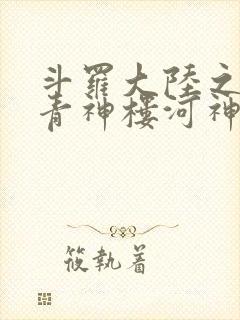 斗羅大陸之
青神樓河神
筱執着